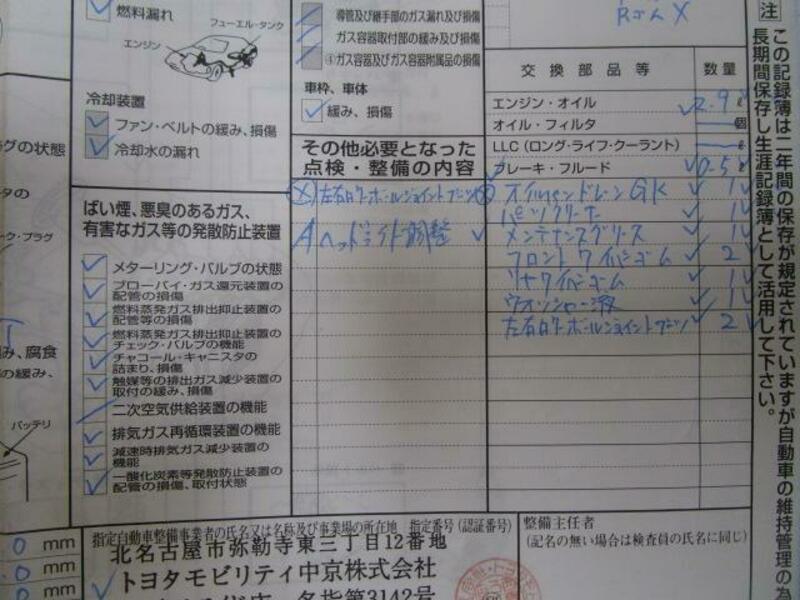 燃料漏れ
フューエル・タンク
エンジン
冷却装置
ファン・ベルトの緩み、損傷
冷却水の漏れ
導管及び継手部のガス漏れ及び損傷
ガス容器取付部の緩み及び損傷
④ガス容器及びガス容器附属品の損傷
車枠、車体
緩み、損傷
その他必要となった
点検・整備の内容
左右ロアーボールジョイントブーツ
A ヘッドライト調整
ばい煙、悪臭のあるガス、
有害なガス等の発散防止装置
メターリング・バルブの状態
ブローバイ・ガス還元装置の
配管の損傷
燃料蒸発ガス排出抑止装置の
配管等の損傷
燃料蒸発ガス排出抑止装置の
チェック・バルブの機能
チャコール・キャニスタの
詰まり、損傷
触媒等の排出ガス減少装置の
取付の緩み、損傷
二次空気供給装置の機能
排気ガス再循環装置の機能
減速時排気ガス減少装置の
機能
一酸化炭素等発散防止装置の
配管の損傷、取付状態
交換部品等 数量
エンジン・オイル 2.9 ℓ
オイル・フィルタ 個
LLC（ロング・ライフ・クーラント） ℓ
ブレーキ・フルード 0.5 ℓ
オイルパンドレーンGK 1
パーツクリーナー 1
メンテナンスグリース 1
フロントワイパーゴム 2
リヤワイパーゴム 1
ウオッシャー液 1
左右ロアーボールジョイントブーツ 2
注
この記録簿は二年間の保存が規定されていますが自動車の維持管理の為
長期間保存し生涯記録簿として活用して下さい。
グの状態
ーク・プラグ
み、腐食
の緩み、
バッテリ
mm
mm
mm
指定自動車整備事業者の氏名又は名称及び事業場の所在地 指定番号（認証番号）
北名古屋市弥勒寺東三丁目12番地
トヨタモビリティ中京株式会社
名指第3142号
整備主任者
（記名の無い場合は検査員の氏名に同じ）